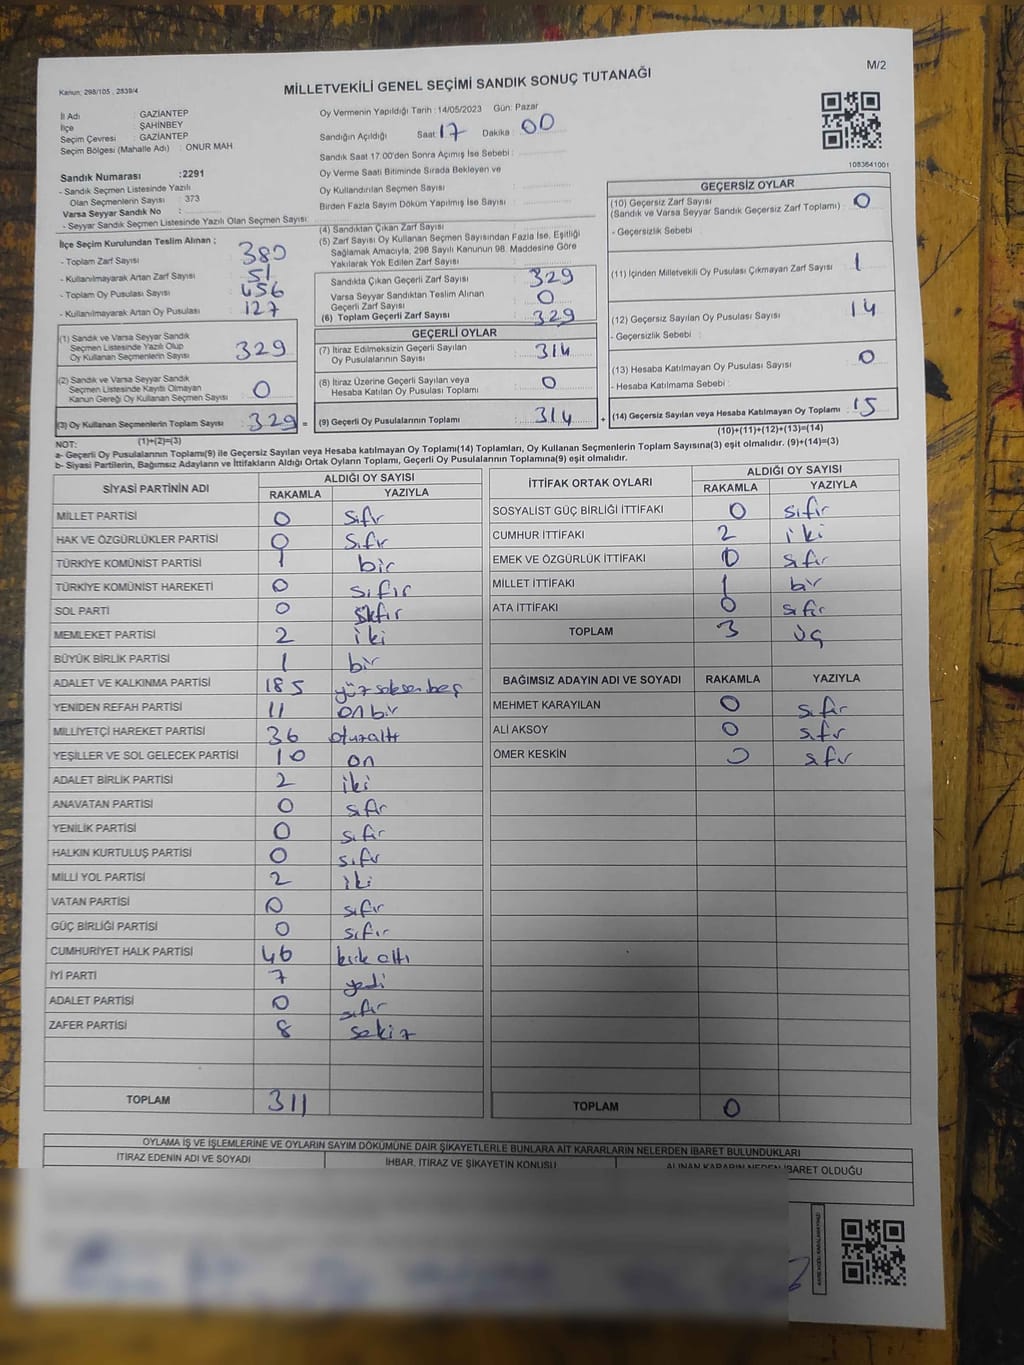 M/2
Kanun: 298/105 , 2839/4
MİLLETVEKİLİ GENEL SEÇİMİ SANDIK SONUÇ TUTANAĞI
İl Adı : GAZİANTEP
İlçe : ŞAHİNBEY
Seçim Çevresi : GAZİANTEP
Seçim Bölgesi (Mahalle Adı) : ONUR MAH.
Sandık Numarası :2291
- Sandık Seçmen Listesinde Yazılı
Olan Seçmenlerin Sayısı : 373
Varsa Seyyar Sandık No :
- Seyyar Sandık Seçmen Listesinde Yazılı Olan Seçmen Sayısı:
Oy Vermenin Yapıldığı Tarih : 14/05/2023 Gün: Pazar
Sandığın Açıldığı Saat 17 Dakika : 00
Sandık Saat 17.00'den Sonra Açımış İse Sebebi :
Oy Verme Saati Bitiminde Sırada Bekleyen ve
Oy Kullandırılan Seçmen Sayısı :
Birden Fazla Sayım Döküm Yapılmış İse Sayısı :
1083641001
İlçe Seçim Kurulundan Teslim Alınan ;
- Toplam Zarf Sayısı : 380
- Kullanılmayarak Artan Zarf Sayısı : 51
- Toplam Oy Pusulası Sayısı : 456
- Kullanılmayarak Artan Oy Pusulası : 127
(1) Sandık ve Varsa Seyyar Sandık
Seçmen Listesinde Yazılı Olup
Oy Kullanan Seçmenlerin Sayısı : 329
(2) Sandık ve Varsa Seyyar Sandık
Seçmen Listesinde Kayıtlı Olmayan
Kanun Gereği Oy Kullanan Seçmen Sayısı : 0
(3) Oy Kullanan Seçmenlerin Toplam Sayısı : 329 =
(1)+(2)=(3)
(4) Sandıktan Çıkan Zarf Sayısı :
(5) Zarf Sayısı Oy Kullanan Seçmen Sayısından Fazla İse, Eşitliği
Sağlamak Amacıyla, 298 Sayılı Kanunun 98. Maddesine Göre
Yakılarak Yok Edilen Zarf Sayısı :
Sandıkta Çıkan Geçerli Zarf Sayısı : 329
Varsa Seyyar Sandıktan Teslim Alınan
Geçerli Zarf Sayısı : 0
(6) Toplam Geçerli Zarf Sayısı : 329
GEÇERLİ OYLAR
(7) İtiraz Edilmeksizin Geçerli Sayılan
Oy Pusulalarının Sayısı : 314
(8) İtiraz Üzerine Geçerli Sayılan veya
Hesaba Katılan Oy Pusulası Toplamı : 0
(9) Geçerli Oy Pusulalarının Toplamı : 314 +
GEÇERSİZ OYLAR
(10) Geçersiz Zarf Sayısı : 0
(Sandık ve Varsa Seyyar Sandık Geçersiz Zarf Toplamı)
- Geçersizlik Sebebi :
(11) İçinden Milletvekili Oy Pusulası Çıkmayan Zarf Sayısı : 1
(12) Geçersiz Sayılan Oy Pusulası Sayısı : 14
- Geçersizlik Sebebi :
(13) Hesaba Katılmayan Oy Pusulası Sayısı : 0
- Hesaba Katılmama Sebebi :
(14) Geçersiz Sayılan veya Hesaba Katılmayan Oy Toplamı : 15
(10)+(11)+(12)+(13)=(14)
NOT:
a- Geçerli Oy Pusulalarının Toplamı(9) ile Geçersiz Sayılan veya Hesaba Katılmayan Oy Toplamı(14) Toplamları, Oy Kullanan Seçmenlerin Toplam Sayısına(3) eşit olmalıdır. (9)+(14)=(3)
b- Siyasi Partilerin, Bağımsız Adayların ve İttifakların Aldığı Ortak Oyların Toplamı, Geçerli Oy Pusulalarının Toplamına(9) eşit olmalıdır.
SİYASİ PARTİNİN ADI ALDIĞI OY SAYISI
RAKAMLA YAZIYLA
MİLLET PARTİSİ 0 sıfır
HAK VE ÖZGÜRLÜKLER PARTİSİ 0 sıfır
TÜRKİYE KOMÜNİST PARTİSİ 1 bir
TÜRKİYE KOMÜNİST HAREKETİ 0 sıfır
SOL PARTİ 0 sıfır
MEMLEKET PARTİSİ 2 iki
BÜYÜK BİRLİK PARTİSİ 1 bir
ADALET VE KALKINMA PARTİSİ 185 yüzseksenbeş
YENİDEN REFAH PARTİSİ 11 onbir
MİLLİYETÇİ HAREKET PARTİSİ 36 otuzaltı
YEŞİLLER VE SOL GELECEK PARTİSİ 10 on
ADALET BİRLİK PARTİSİ 2 iki
ANAVATAN PARTİSİ 0 sıfır
YENİLİK PARTİSİ 0 sıfır
HALKIN KURTULUŞ PARTİSİ 0 sıfır
MİLLİ YOL PARTİSİ 2 iki
VATAN PARTİSİ 0 sıfır
GÜÇ BİRLİĞİ PARTİSİ 0 sıfır
CUMHURİYET HALK PARTİSİ 46 kırk altı
İYİ PARTİ 7 yedi
ADALET PARTİSİ 0 sıfır
ZAFER PARTİSİ 8 sekiz
TOPLAM 311
İTTİFAK ORTAK OYLARI ALDIĞI OY SAYISI
RAKAMLA YAZIYLA
SOSYALİST GÜÇ BİRLİĞİ İTTİFAKI 0 sıfır
CUMHUR İTTİFAKI 2 iki
EMEK VE ÖZGÜRLÜK İTTİFAKI 0 sıfır
MİLLET İTTİFAKI 1 bir
ATA İTTİFAKI 0 sıfır
TOPLAM 3 üç
BAĞIMSIZ ADAYIN ADI VE SOYADI RAKAMLA YAZIYLA
MEHMET KARAYILAN 0 sıfır
ALİ AKSOY 0 sıfır
ÖMER KESKİN 0 sıfır
TOPLAM 0
OYLAMA İŞ VE İŞLEMLERİNE VE OYLARIN SAYIM DÖKÜMÜNE DAİR ŞİKAYETLERLE BUNLARA AİT KARARLARIN NELERDEN İBARET BULUNDUKLARI
İTİRAZ EDENİN ADI VE SOYADI İHBAR, İTİRAZ VE ŞİKAYETİN KONUSU ALINAN KARARIN NEDEN İBARET OLDUĞU